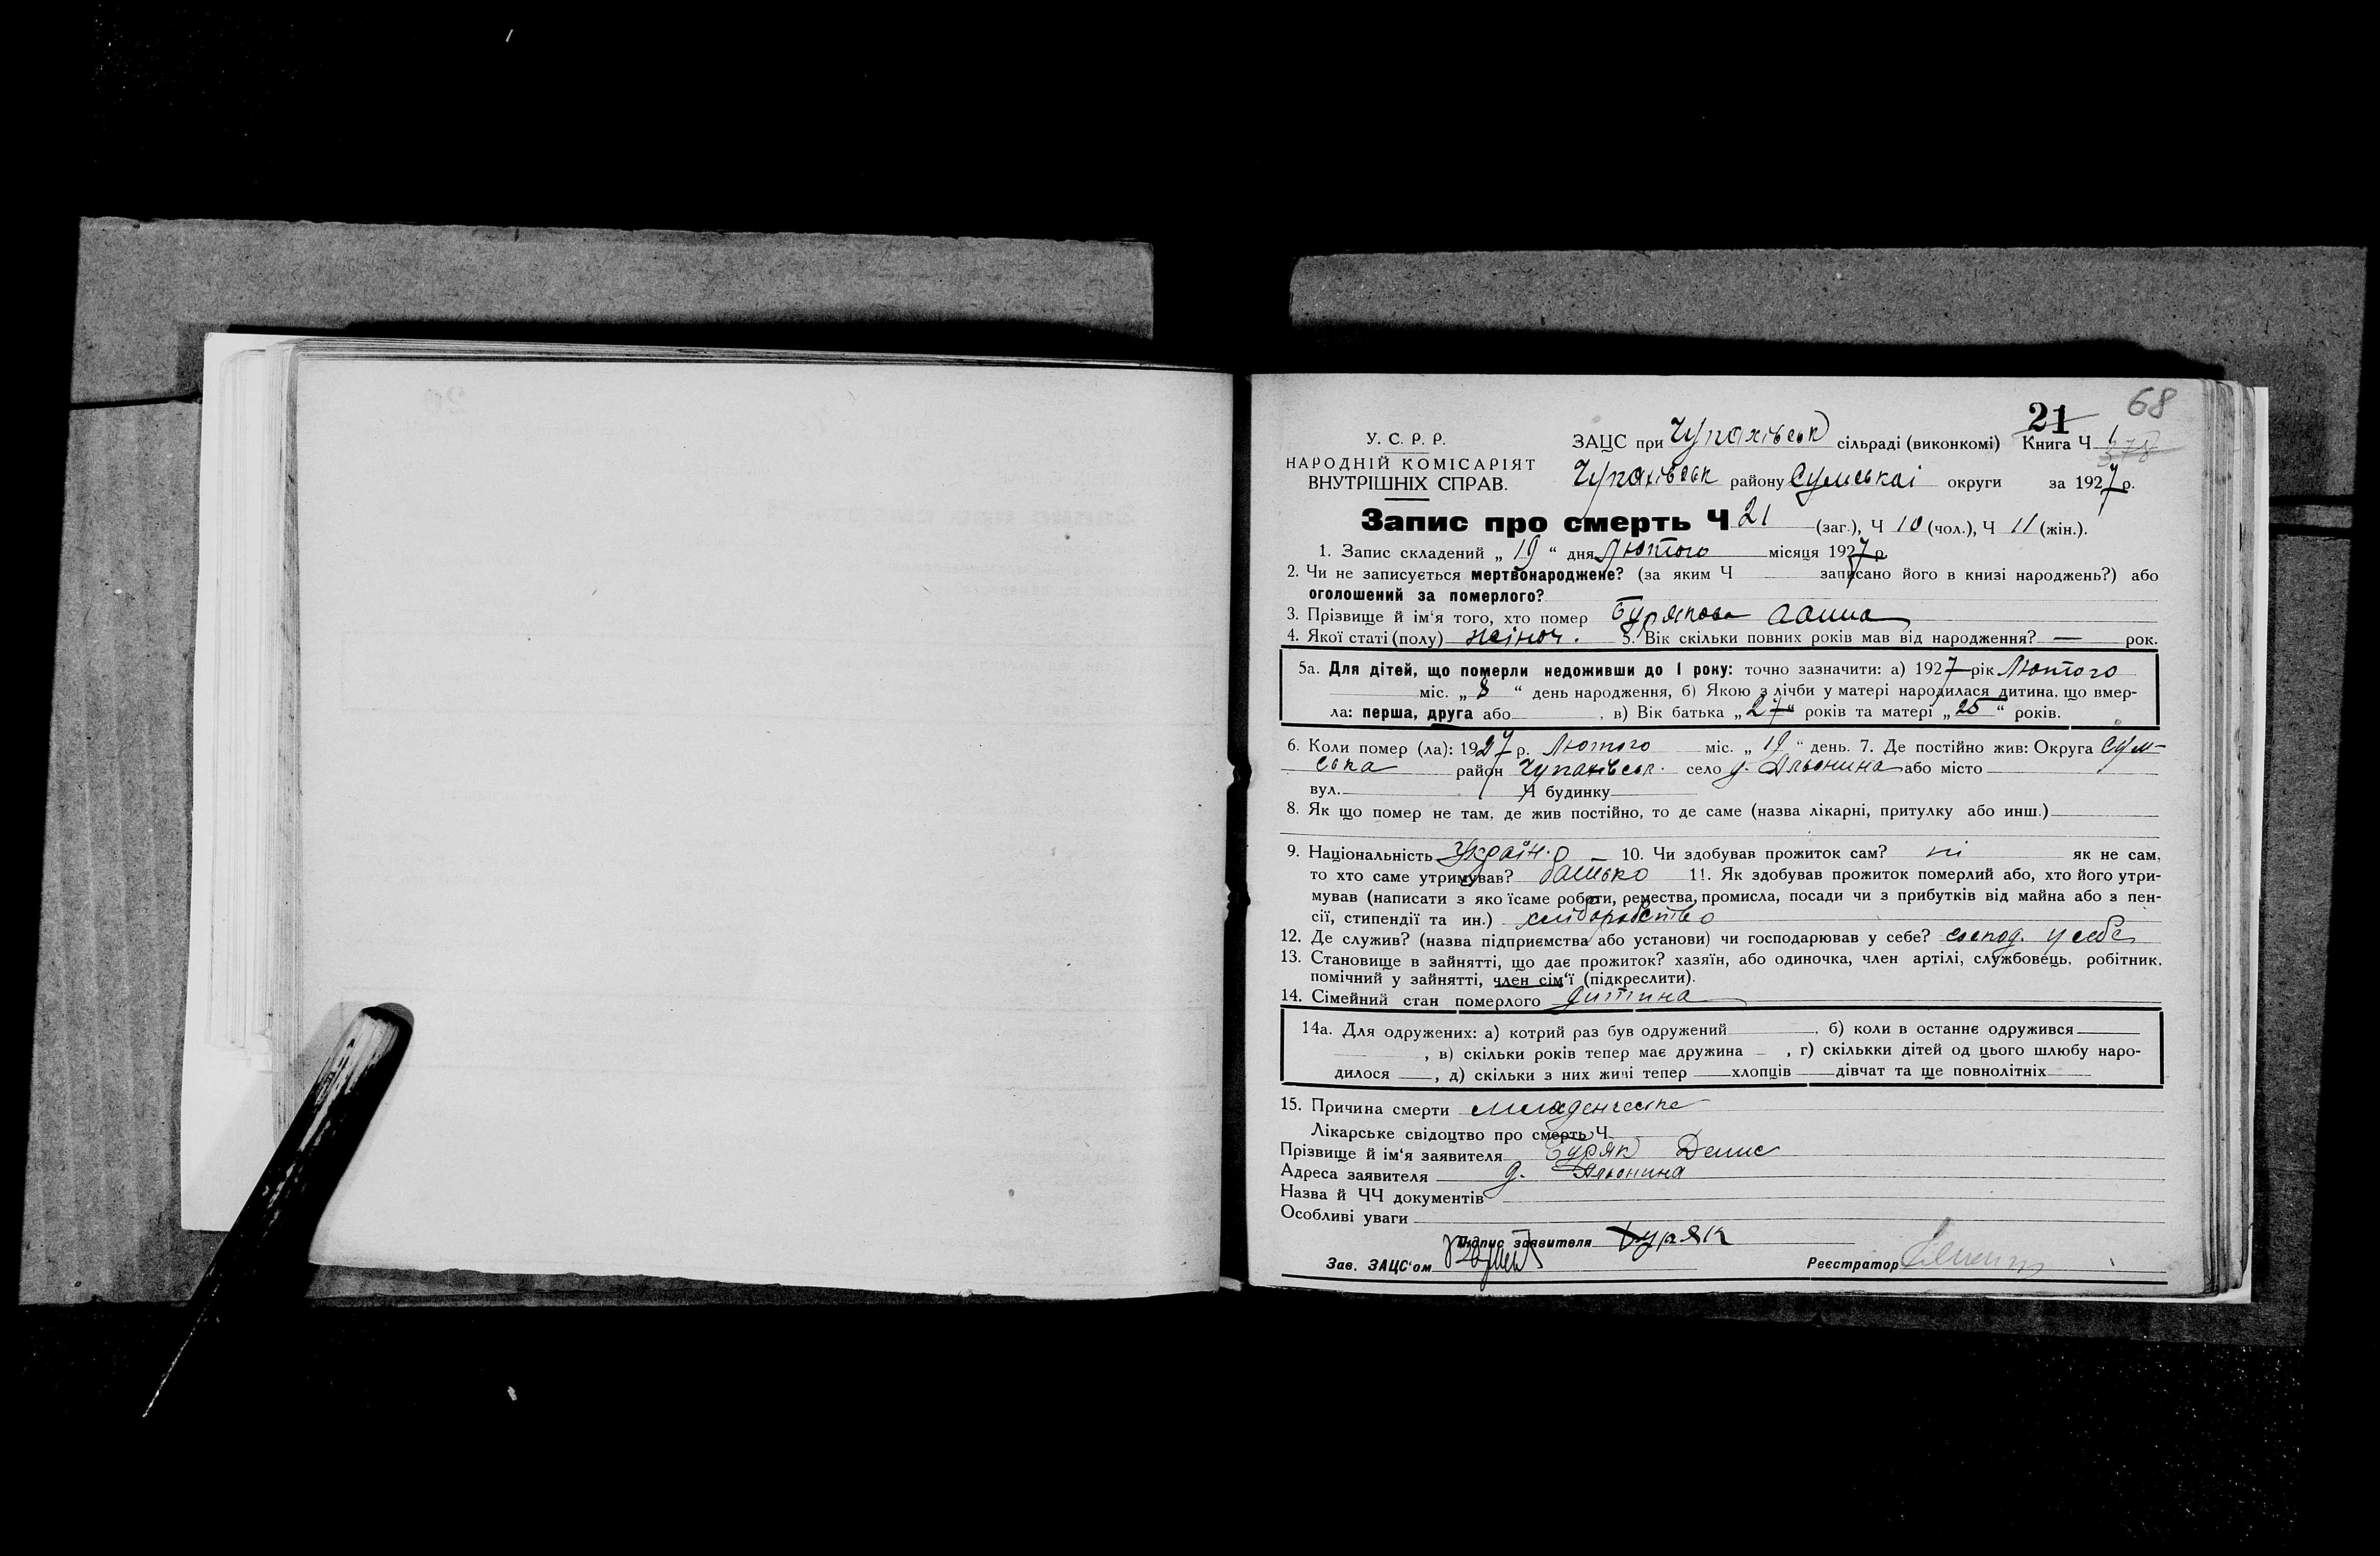 21 68
У. С. Р. Р.
НАРОДНІЙ КОМІСАРІЯТ
ВНУТРІШНІХ СПРАВ.
ЗАЦС при Чупахівськ сільраді (виконкомі) Книга Ч 1 378
Чупахівськ району Сумськаі округи за 1927 р.
Запис про смерть Ч 21 (заг.), Ч 10 (чол.), Ч 11 (жін.).
1. Запис складений „ 19 “ дня Лютого місяця 1927 р.
2. Чи не записується мертвонароджене? (за яким Ч записано його в книзі народжень?) або
оголошений за померлого?
3. Прізвище й ім‘я того, хто помер Бурякова
4. Якої статі (полу) жіноч. 5. Вік скільки повних років мав від народження? — рок.
5а. Для дітей, що померли недоживши до 1 року: точно зазначити: а) 1927 рік Лютого
міс. „ 8 “ день народження, б) Якою з лічби у матері народилася дитина, що вмер-
ла: перша, друга або , в) Вік батька „ 27 “ років та матері „ 25 “ років.
6. Коли помер (ла): 1927 р. Лютого міс. „ 19 “ день. 7. Де постійно жив: Округа Сум-
ська район Чупахівськ. село д. Альонина або місто
вул. Ч будинку
8. Як що помер не там, де жив постійно, то де саме (назва лікарні, притулку або инш.)
9. Національність 10. Чи здобував прожиток сам? ні як не сам,
то хто саме утримував? батько 11. Як здобував прожиток померлий або, хто його утри-
мував (написати з яко їсаме роботи, ремества, промисла, посади чи з прибутків від майна або з пен-
сії, стипендії та ин.) хліборобство
12. Де служив? (назва підприємства або установи) чи господарював у себе? господ. у себе
13. Становище в зайнятті, що дає прожиток? хазяїн, або одиночка, член артілі, службовець, робітник,
помічний у зайнятті, член сім‘ї (підкреслити).
14. Сімейний стан померлого дитина
14а. Для одружених: а) котрий раз був одружений , б) коли в останнє одружився
, в) скільки років тепер має дружина — , г) скількки дітей од цього шлюбу наро-
дилося , д) скільки з них живі тепер хлопців дівчат та ще повнолітніх
15. Причина смерти младенческе
Лікарське свідоцтво про смерть Ч
Прізвище й ім‘я заявителя Буряк Денис
Адреса заявителя д. Альонина
Назва й ЧЧ документів
Особливі уваги
Підпис заявителя Буряк
Зав. ЗАЦС‘ом Реєстратор